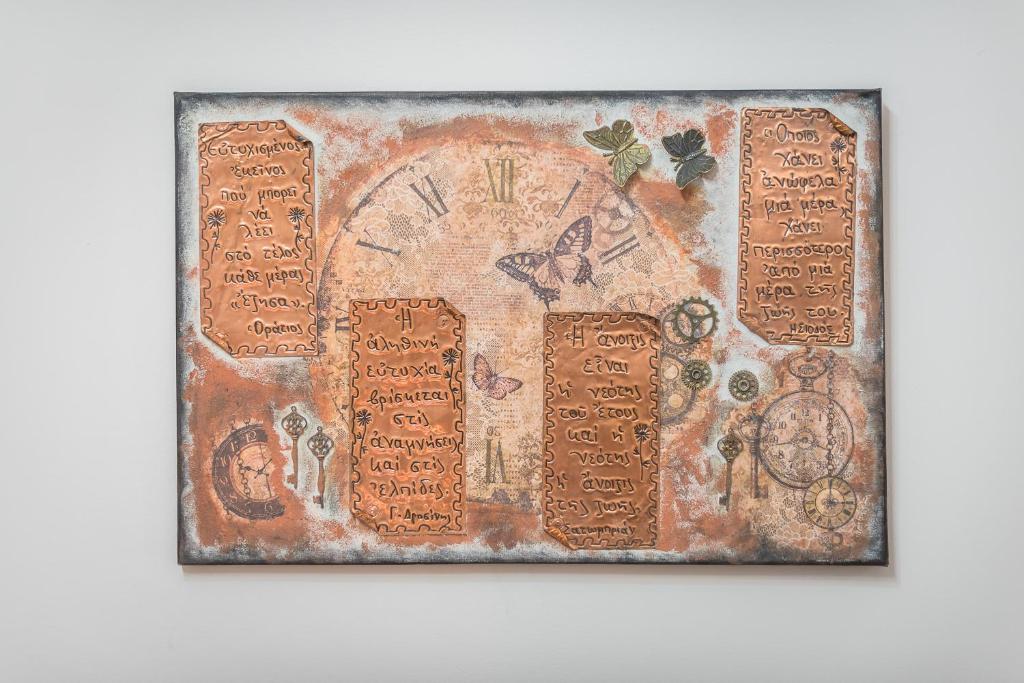 Εὐτυχισμένος
ἐκεῖνος
πού μπορεῖ
νά
λέει
στό τέλος
κάθε μέρας
«ἔζησα».
Ὁράτιος
Ἡ
ἀληθινή
εὐτυχία
βρίσκεται
στίς
ἀναμνήσεις
καί στίς
ἐλπίδες.
Γ. Δροσίνης
Ἡ ἄνοιξις
εἶναι
ἡ νεότης
τοῦ ἔτους
καί ἡ
νεότης
ἡ ἄνοιξις
τῆς ζωῆς.
Σατωμπριάν
Ὅποιος
χάνει
ἀνώφελα
μιά μέρα
χάνει
περισσότερο
ἀπό μιά
μέρα τῆς
ζωῆς του
ΗΣΙΟΔΟΣ
X
XI
XII
I
II
VI